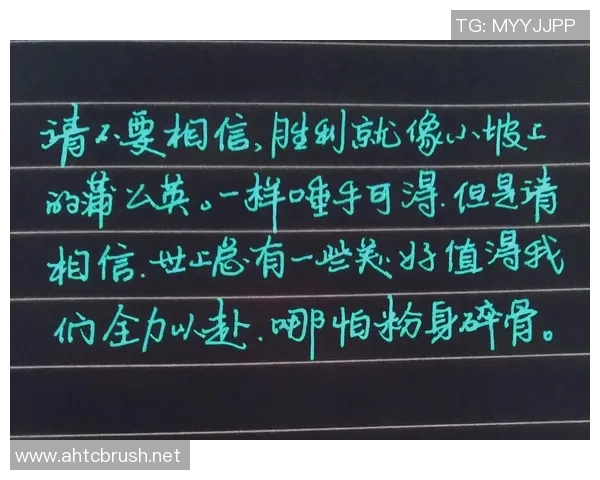 TG: MYYJJPP
请不要相信,胜利就像小坡上
的蒲公英。一样唾手可得.但是请
相信.世上总有一些美好值得我
们全力以赴.哪怕粉身碎骨。
www.ahtcbrush.net